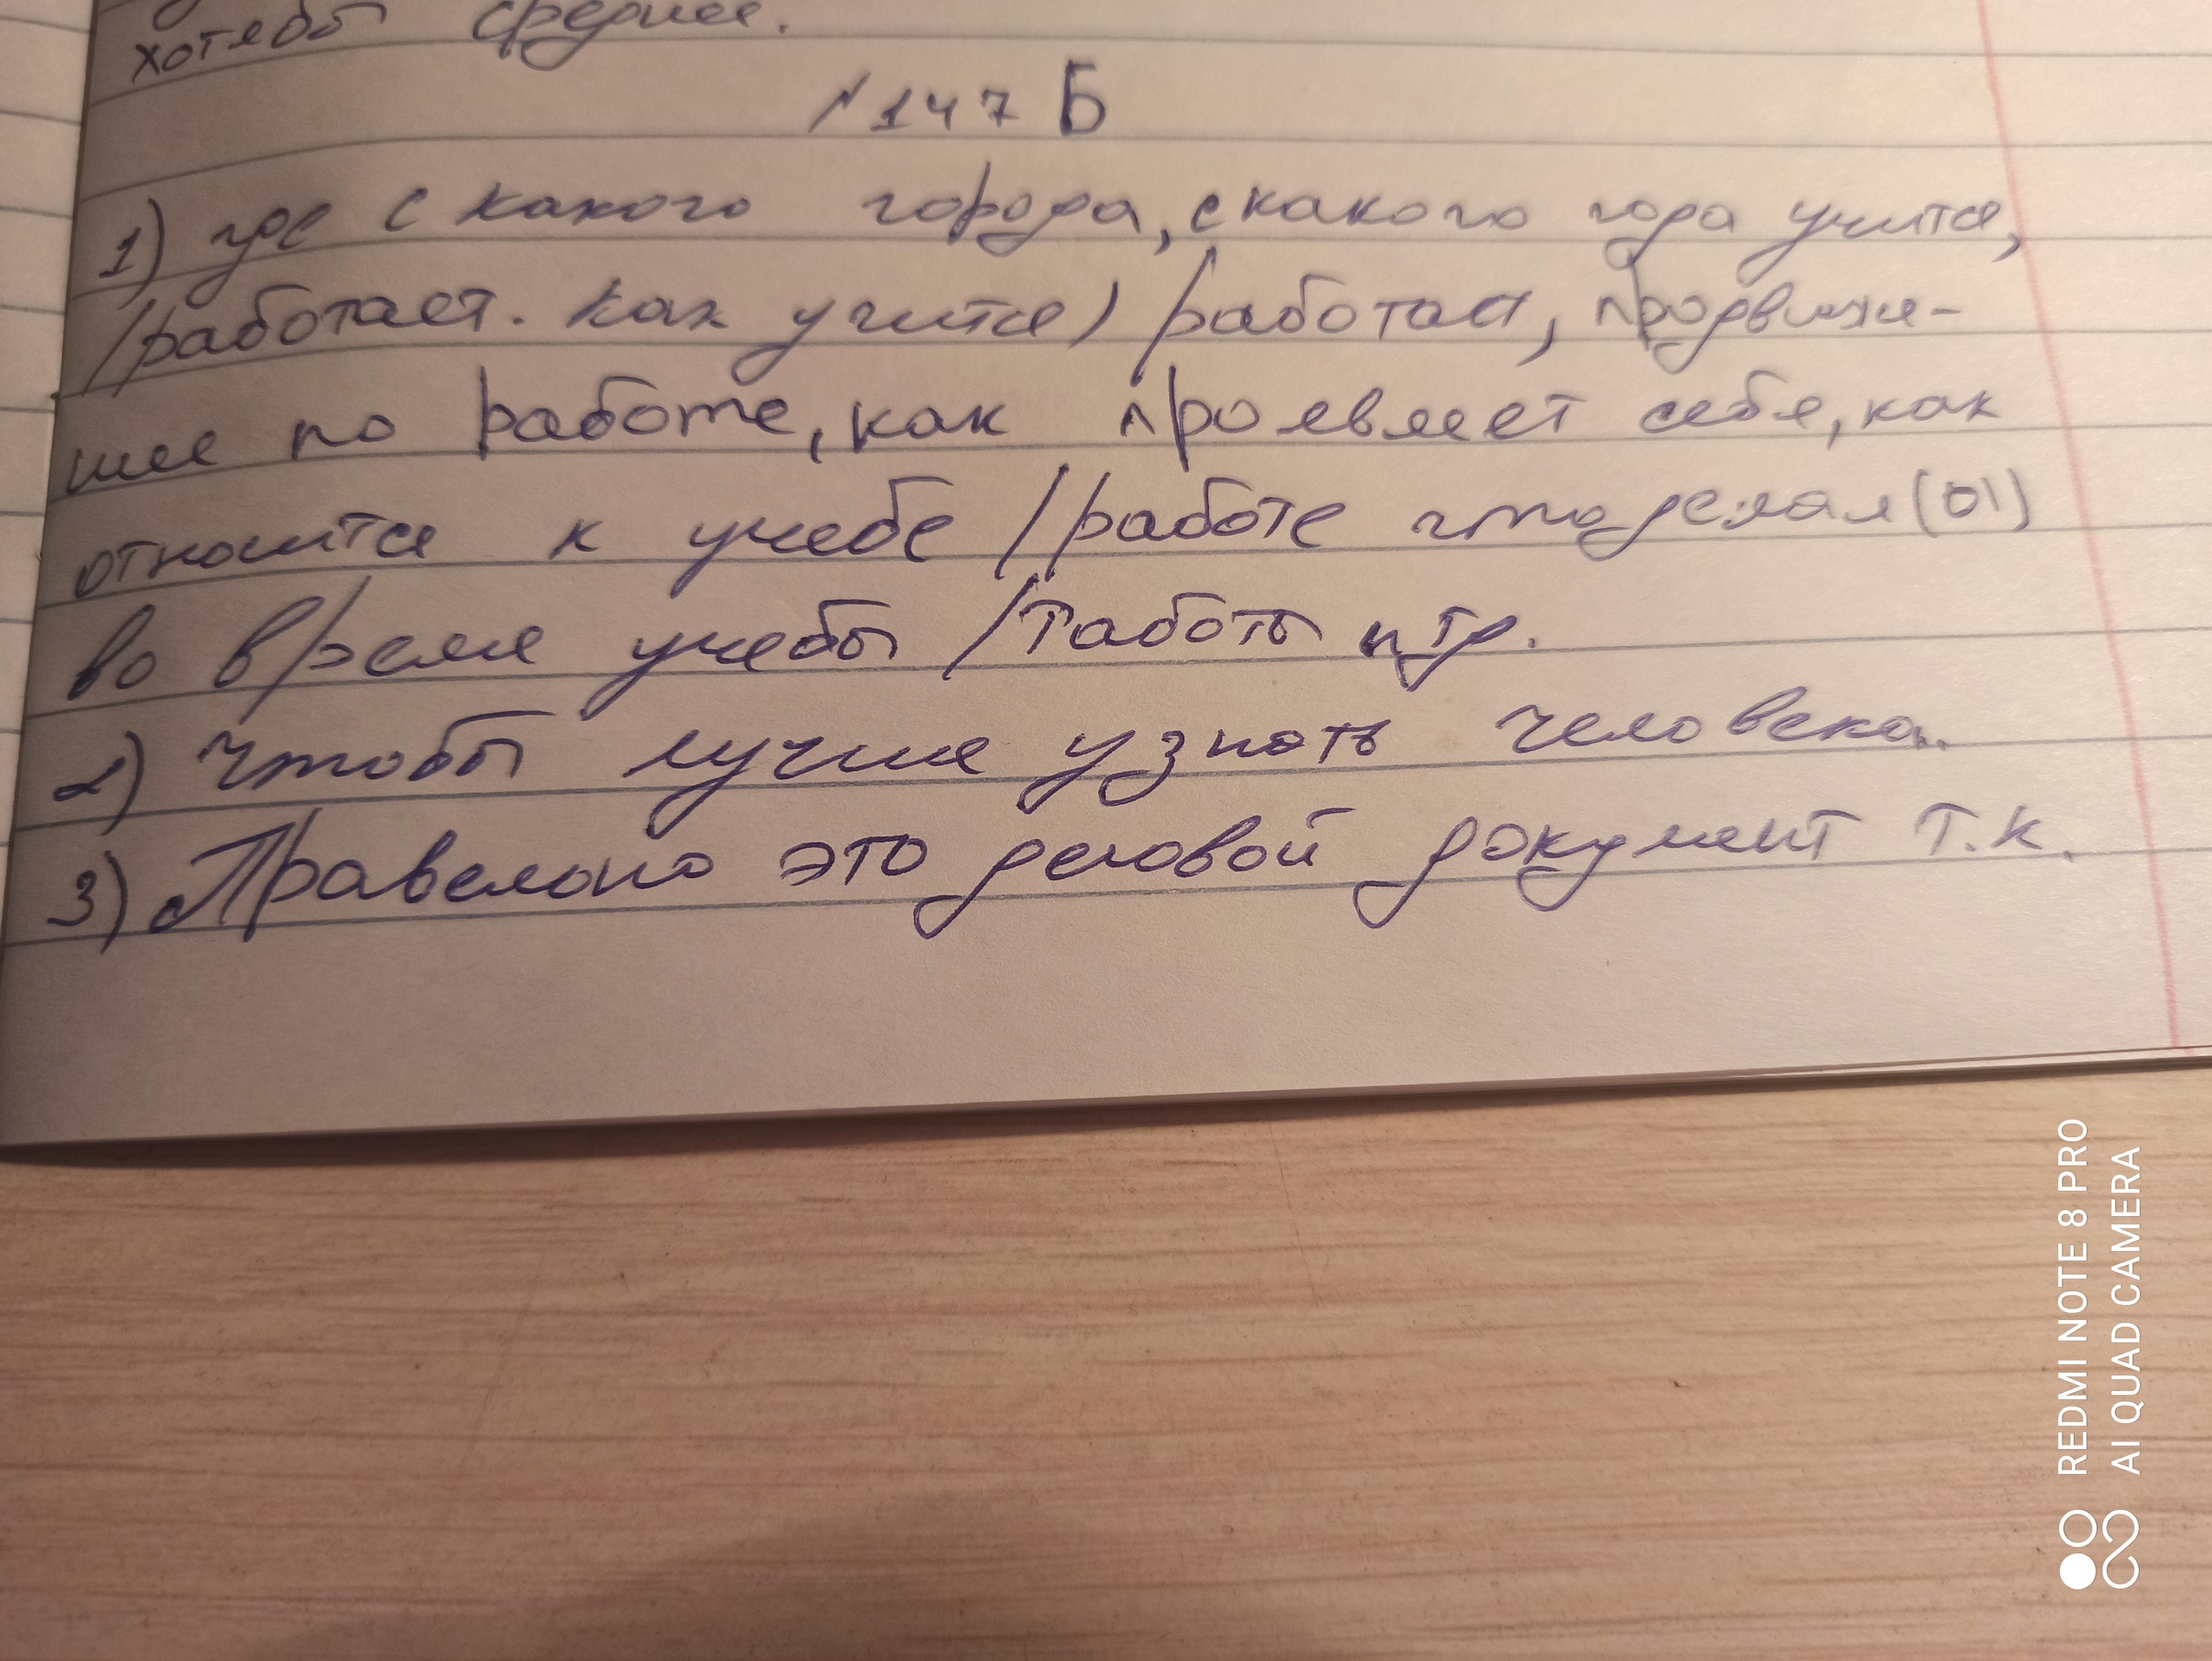 хотябы среднее.
№147 Б
1) где с какого города, с какого года учится,
/работает. Как учится) работал, продвиже-
ние по работе, как проявляет себя, как
относится к учебе /работе что делал (а)
во время учебы /Таботы итр.
2) Чтобы лучше узнать человека.
3) Правельно это деловой документ т.к.
REDMI NOTE 8 PRO
AI QUAD CAMERA